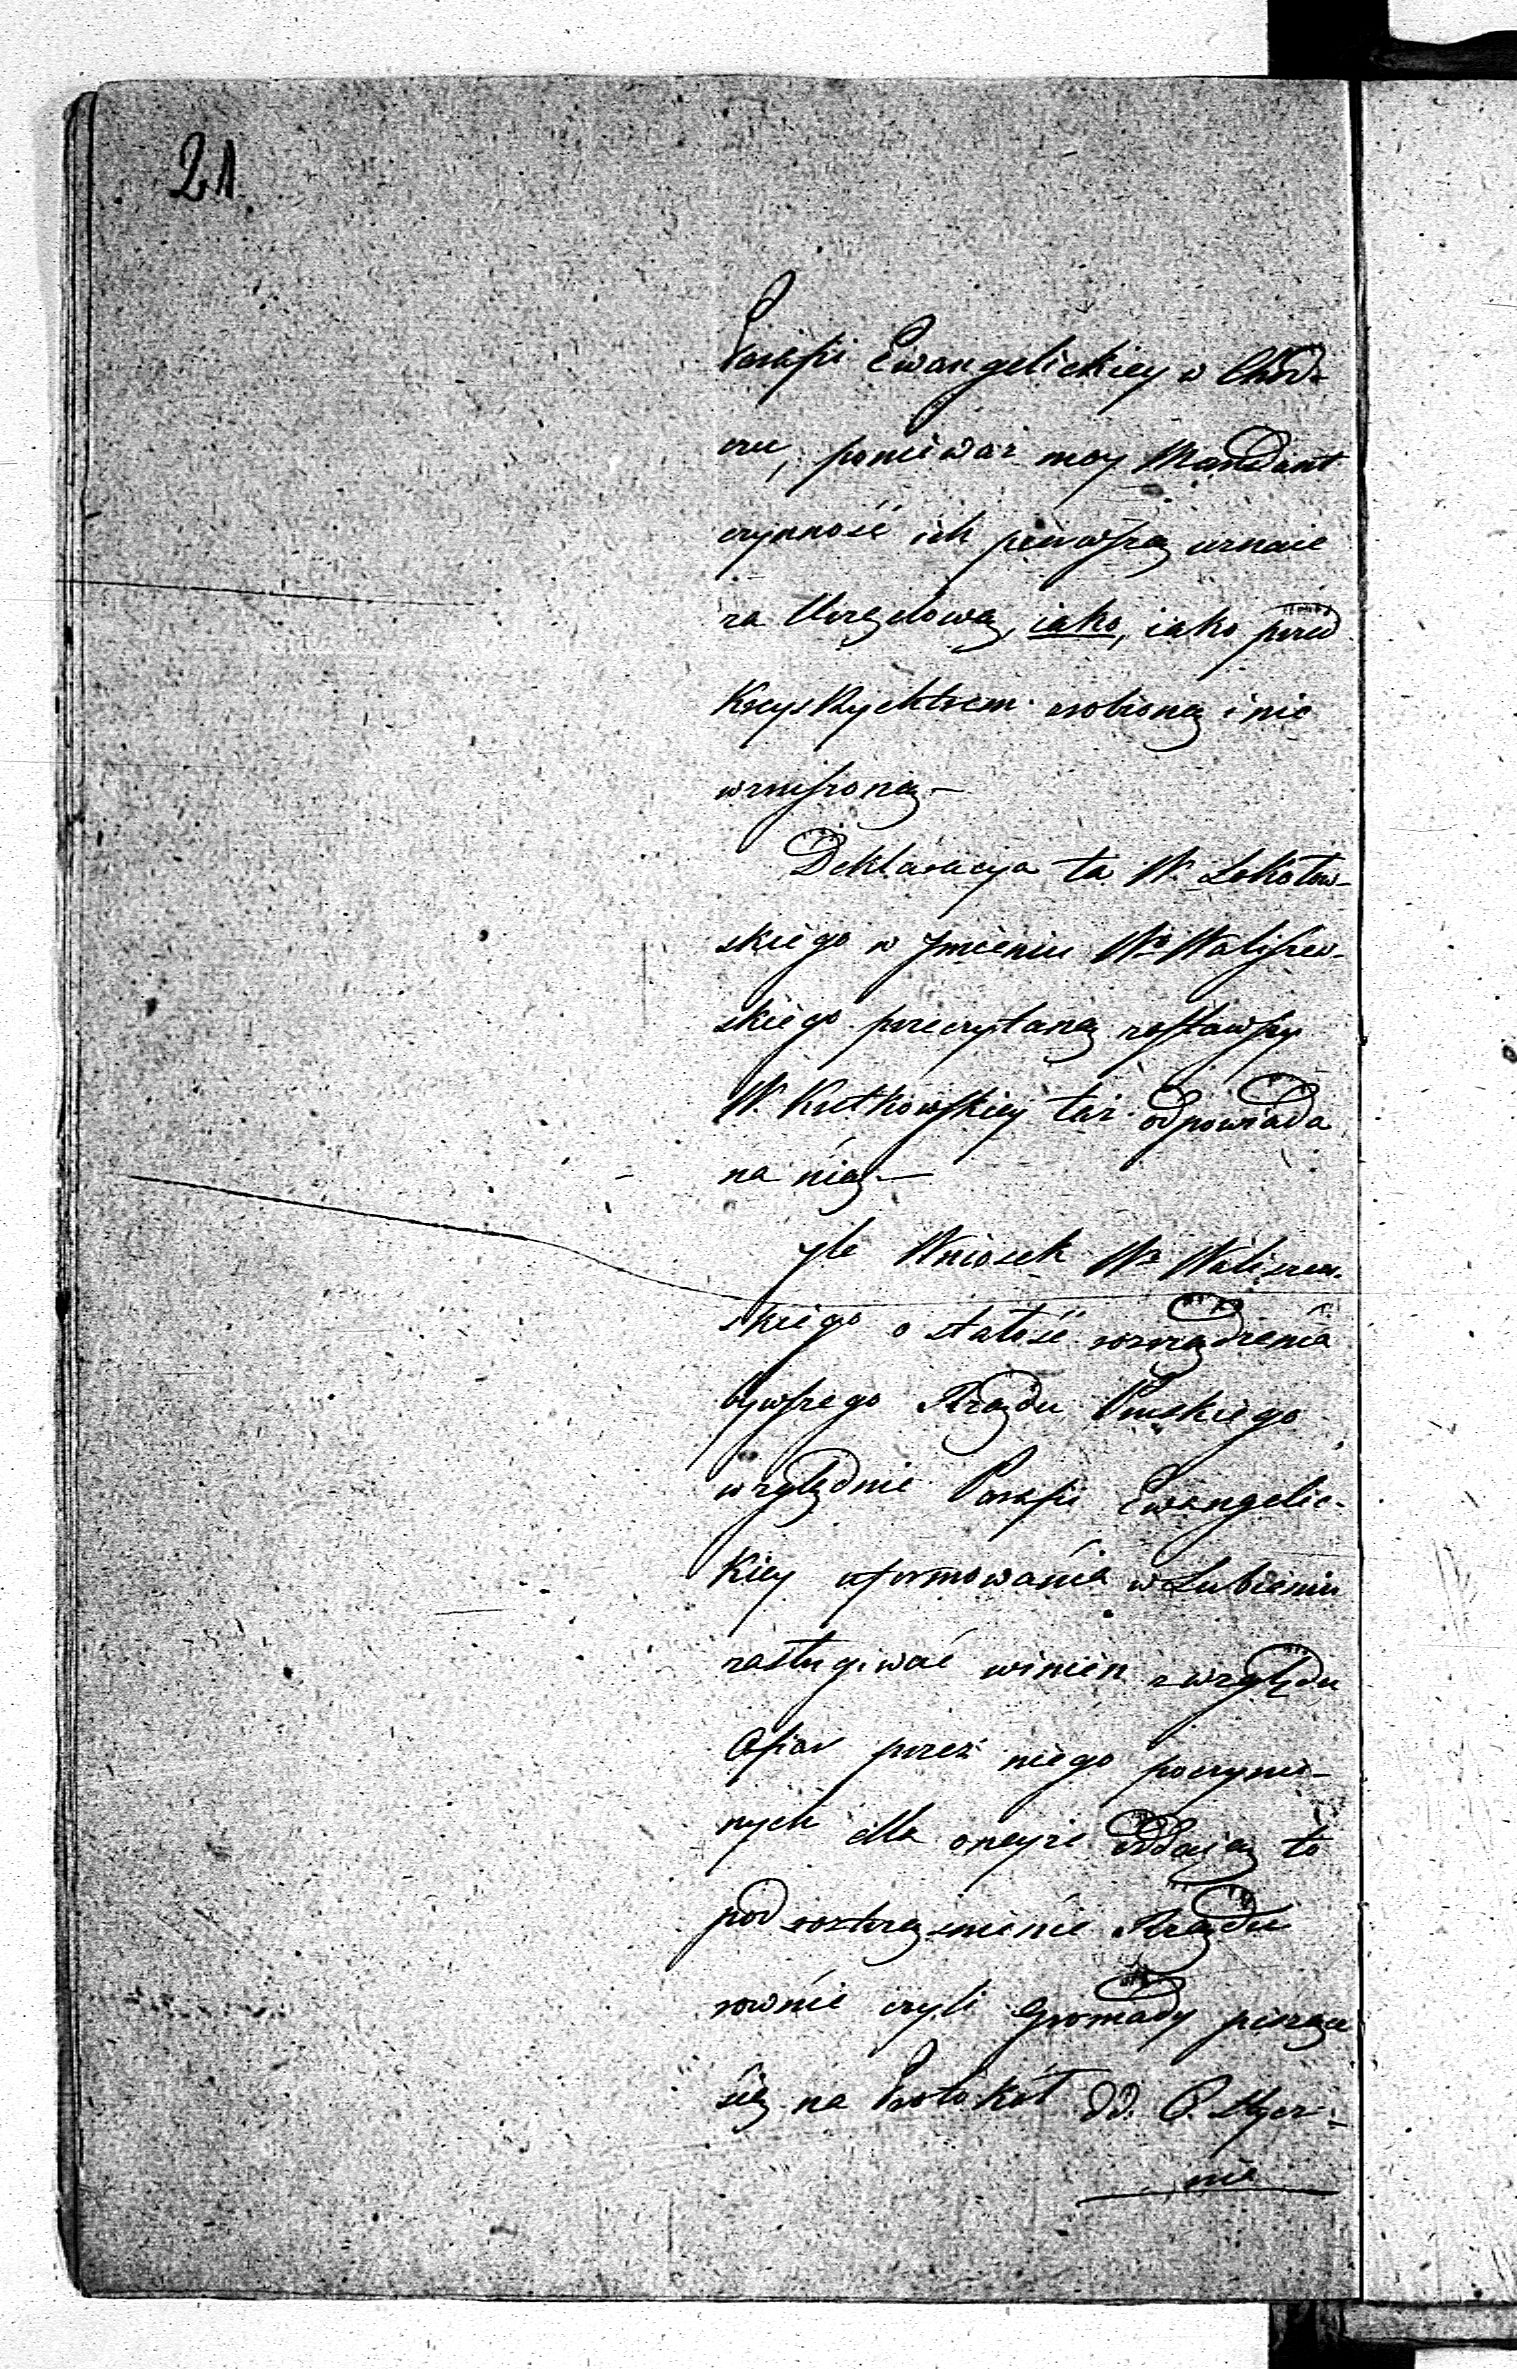 21
Parafii Ewangelickiey w Chod-
czu, poniewaz moy Mandant
czynność ich pierwszą uznaie
za Urzędową, iako, iako przed
wzruszoną –
Deklaracya ta W. Sokołow-
skiego w Jmieniu Wo Walişzew-
skiego przeczytaną zostawszy
W. Kretkowskiey taż odpowiada
na nią –
Jle Wniosek Wo Waliszew-
skiego o stałość rozrządzenia
bywszego Rządu Pruskiego
względnie Parafii Ewangelic-
kiey uformowania w Lubieniu
zasługiwać winien z względu
Ofiar przez niego poczynio-
nych dla oneyże oddaiąc to
pod roztrząśnienie Rządu
rownie czyli Gromady pisząc
się na Protokół dd.
nia